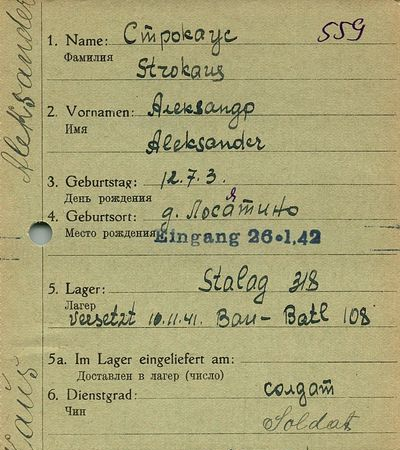 1. Name: Строкаус 559
Фамилия
Strokaus
2. Vornamen: Александр
Имя
Aleksander
3. Geburtstag: 12.7.3.
День рождения
4. Geburtsort: д. Лосятино
Место рождения Eingang 26.1.42
5. Lager: Stalag 318
Лагер
Versetzt 10.11.41. Bau-Batl 108
5a. Im Lager eingeliefert am:
Доставлен в лагер (число)
6. Dienstgrad: солдат
Чин
Soldat
Aleksander